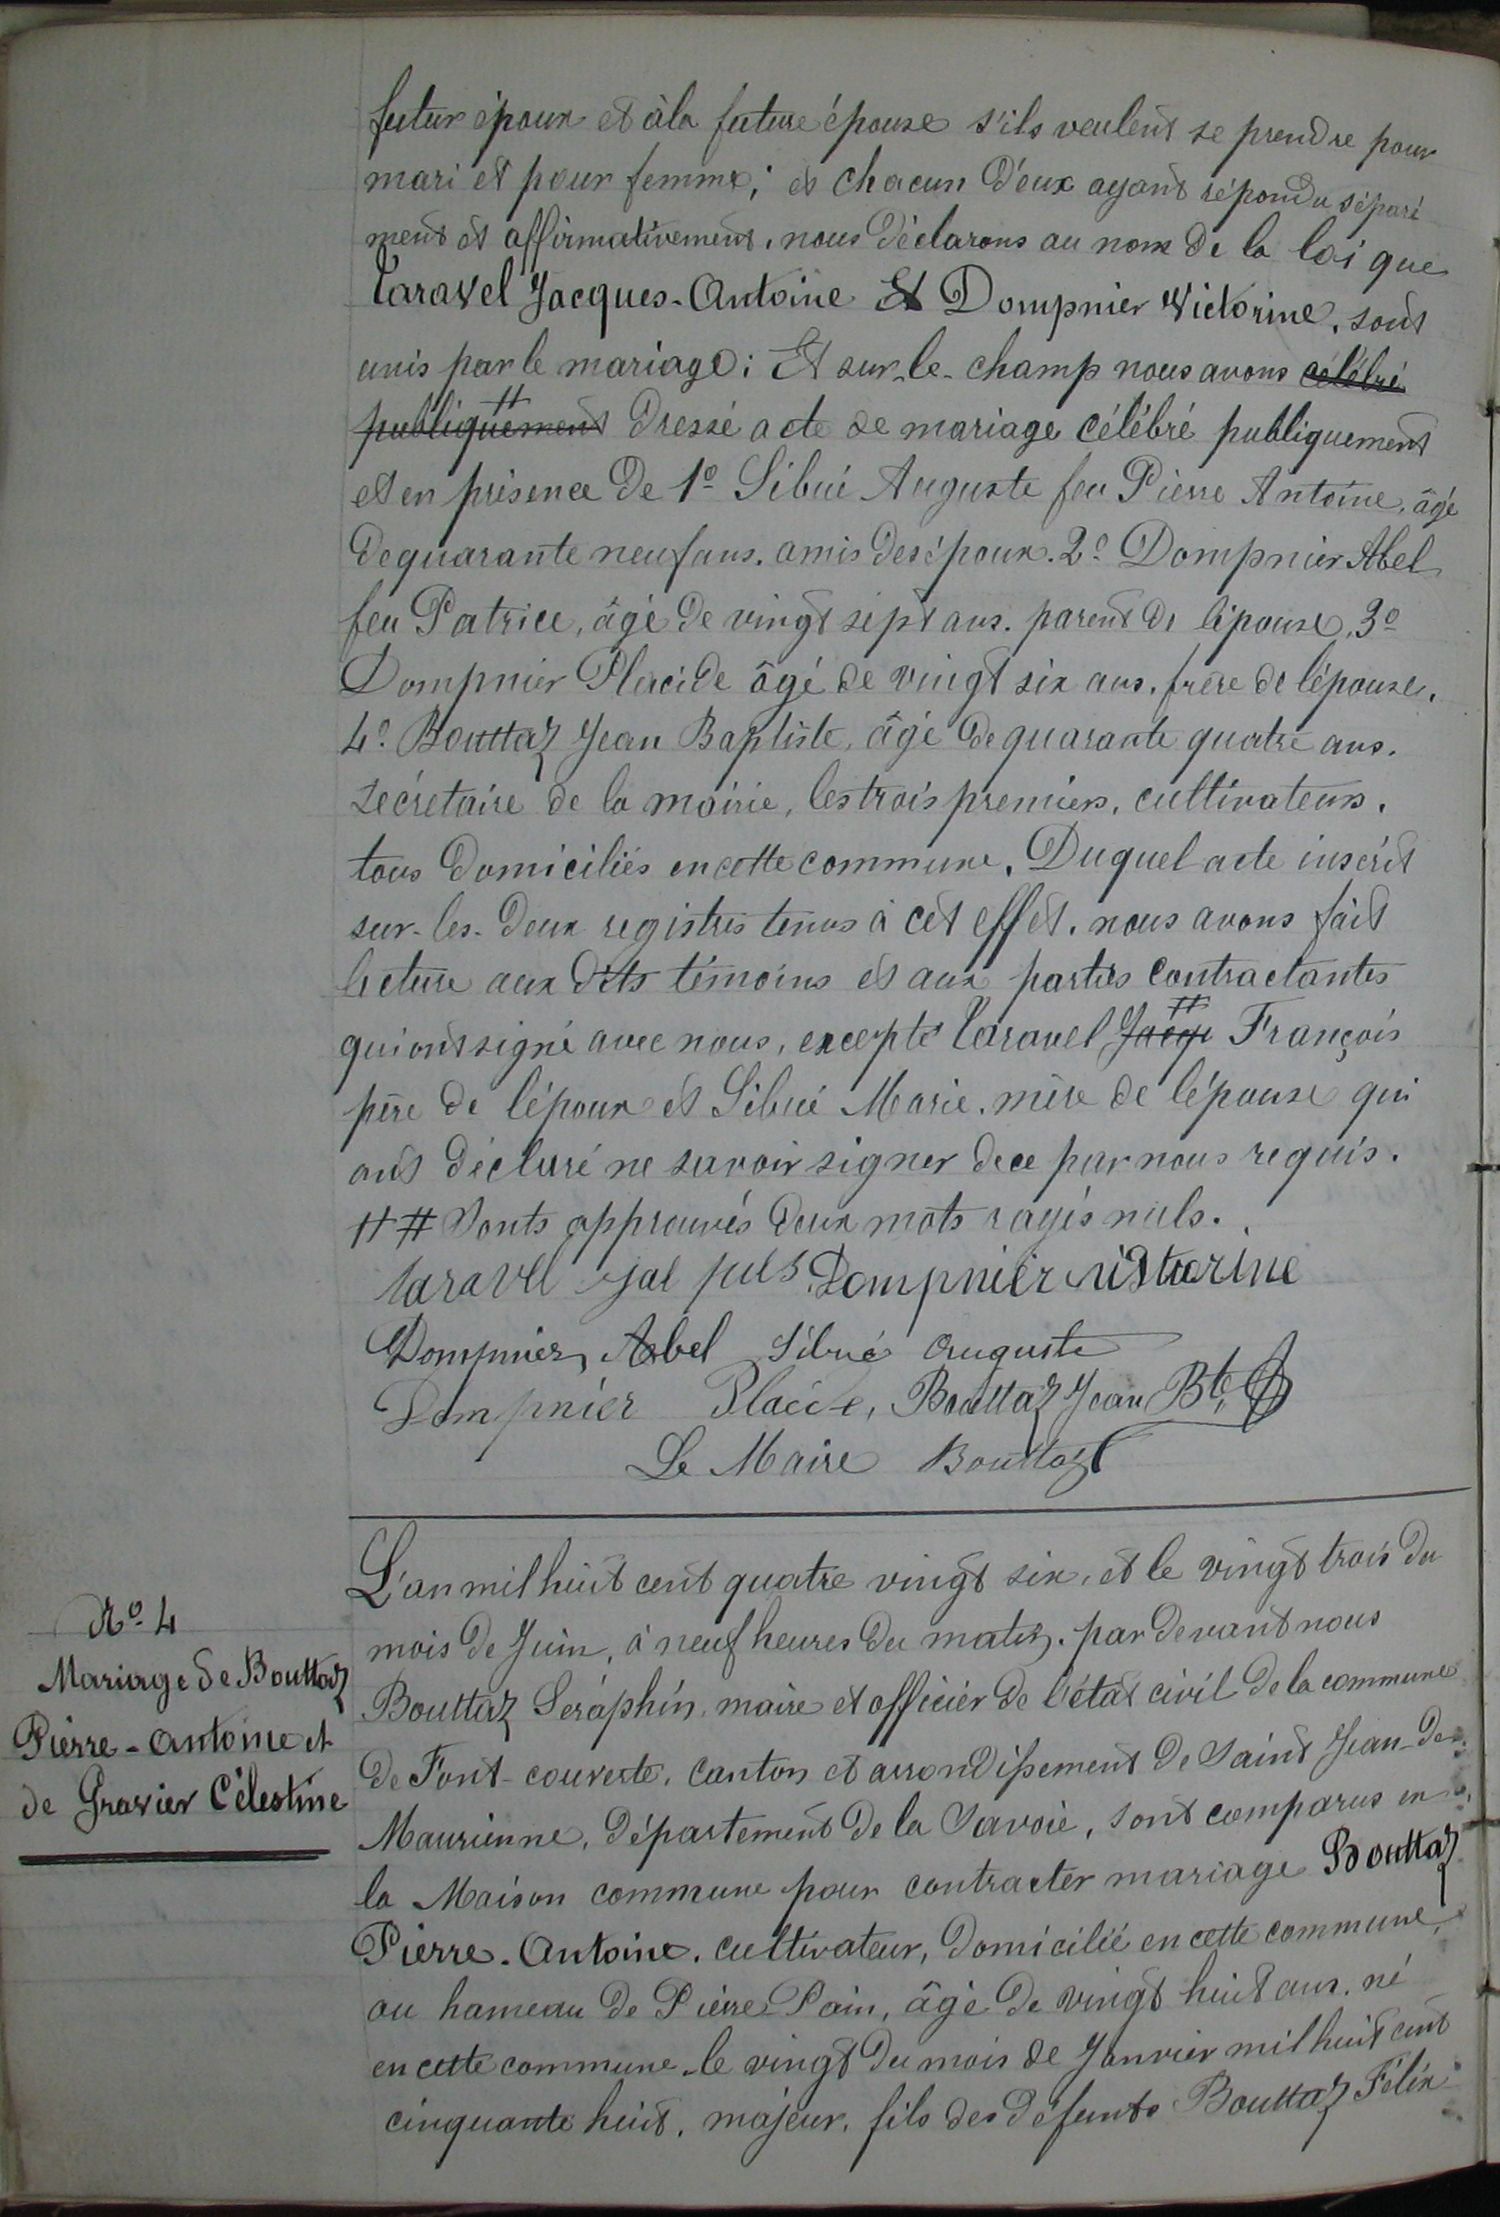 futur époux et à la future épouse s'ils veulent se prendre pour
mari et pour femme; et chacun d'eux ayant répondu séparé
ment et affirmativement, nous déclarons au nom de la loi que
Taravel Jacques-Antoine Et Dompnier Victorine, sont
unis par le mariage: Et sur-le-champ nous avons célébré
publiquement dressé acte de mariage célébré publiquement
et en présence de 1º Sibué Auguste feu Pierre Antoine, âgé
de quarante neuf ans. amis des époux. 2º Dompnier Abel
feu Patrice, âgé de vingt sept ans. parent de l'épouse, 3º
Dompnier Placide âgé de vingt six ans. frère de l'épouse.
4º Bouttaz Jean Baptiste, âgé de quarante quatre ans.
secrétaire de la mairie, les trois premiers, cultivateurs.
tous domiciliés en cette commune. Duquel acte inscrit
sur-les-deux registres tenus à cet effet. nous avons fait
lecture aux dits témoins et aux parties contractantes
qui ont signé avec nous, excepté Taravel Jacq François
père de l'époux et Sibué Marie. mère de l'épouse qui
ont déclaré ne savoir signer de ce par nous requis.
# # Sonts approuvés deux mots rayés nuls.
taravel Dompnier victorine
Dompnier Abel Sibué Auguste
Dompnier Placide, Bouttaz Jean Bte
Le Maire Bouttaz
Nº 4
Mariage de Bouttaz
Pierre-Antoine et
de Gravier Célestine
L'an mil huit cent quatre vingt six, et le vingt trois du
mois de Juin, à neuf heures du matin. par devant nous
Bouttaz Séraphin, maire et officier de l'état civil de la commune
de Font-couverte, canton et arrondissement de Saint Jean-de-
Maurienne, département de la Savoie, sont comparus en
la Maison commune pour contracter mariage Bouttaz
Pierre-Antoine, cultivateur, domicilié en cette commune,
au hameau de Pierre-Pain, âgé de vingt huit ans, né
en cette commune le vingt du mois de Janvier mil huit cent
cinquante huit, majeur, fils des défunts Bouttaz Félix